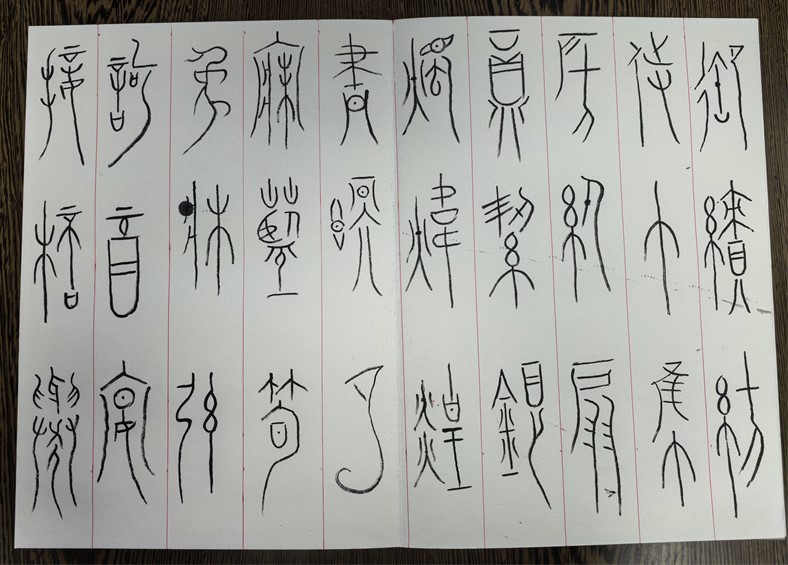 御績紡
侍巾帷
房紈扇
員絜銀
燭煒煌
晝眠夕
寐藍筍
象牀弦
訶酉宴
接桮舉